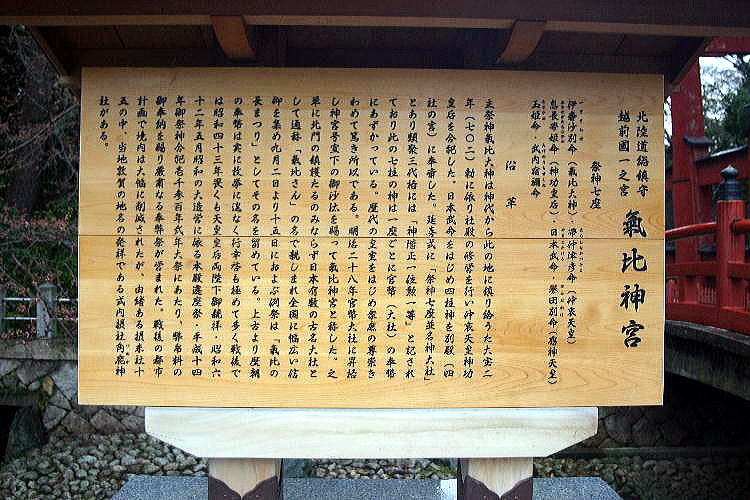 北陸道総鎮守
越前國一之宮
氣比神宮
祭神七座
伊奢沙別命(氣比大神)・帯仲津彦命(仲哀天皇)
息長帯姫命(神功皇后)・日本武命・誉田別命(應神天皇)
玉姫命・武内宿禰命
沿革
主祭神氣比大神は神代から此の地に鎮り給うた大宝二
年(七〇二)勅に依り社殿の修営を行い仲哀天皇神功
皇后を合祀した。日本武命をはじめ四柱神を別殿(四
社の宮)に奉斎した。延喜式に「祭神七座並名神大社」
とあり類聚三代格には「神階正一位勲一等」と記され
ており此の七柱の神は一座ごとに官幣(大社)の奉幣
にあずかっている。歴代の皇室をはじめ衆庶の尊崇き
わめて篤き所以である。明治二十八年官幣大社に昇格
し神宮号宣下の御沙汰を賜って氣比神宮と称した。之
單に北門の鎮護たるのみならず日本有数の古名大社と
して通称「氣比さん」の名で親しまれ全国に幅広い信
仰を集め九月二日より十五日におよぶ例祭は「氣比の
長まつり」としてその名を留めている。上古より歴朝
の奉幣は実に枚挙に遑なく行幸啓も極めて多く戦後で
は昭和四十三年畏くも天皇皇后両陛下御親拝・昭和六
十二年五月昭和の大造営に依る本殿遷座祭・平成十四
年御祭神合祀壱千参百年式年大祭にあたり、幣帛料の
御奉納を賜り厳肅なる奉幣祭が営まれた。戦後の都市
計画で境内は大幅に削減されたが、由緒ある摂末社十
五の中、当地敦賀の地名の発祥である式内摂社角鹿神
社がある。